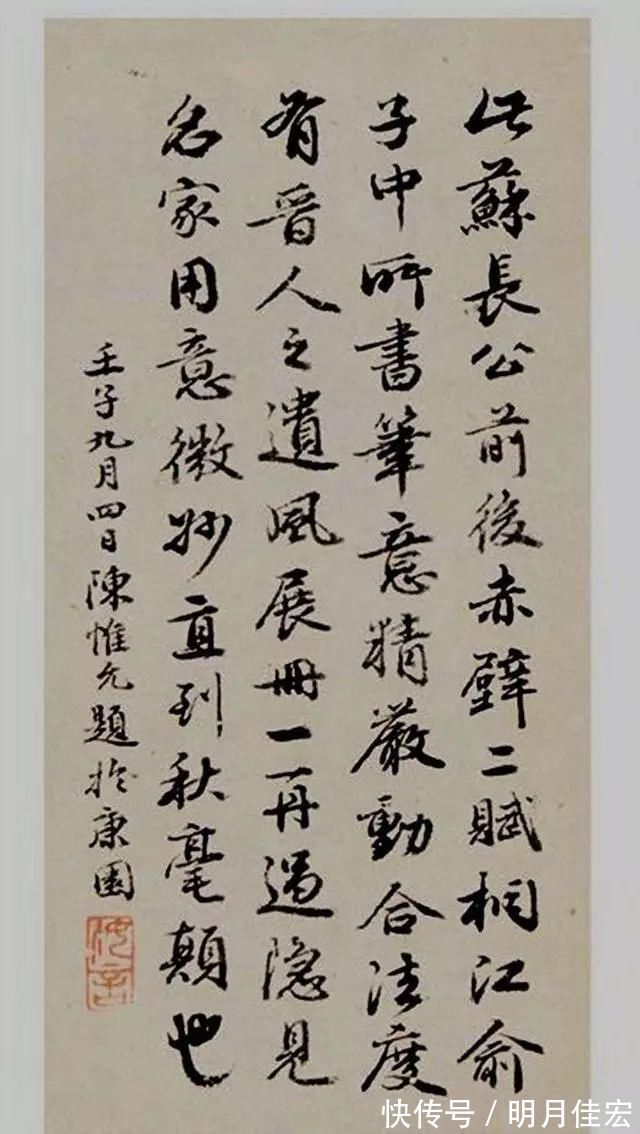 此蘇長公前後赤壁二賦桐江俞
子中所書筆意精嚴動合法度
有晉人之遺風展冊一再過隐見
名家用意微妙直到秋毫顛也
壬子九月四日陳惟允題於康園
快传号／明月佳宏